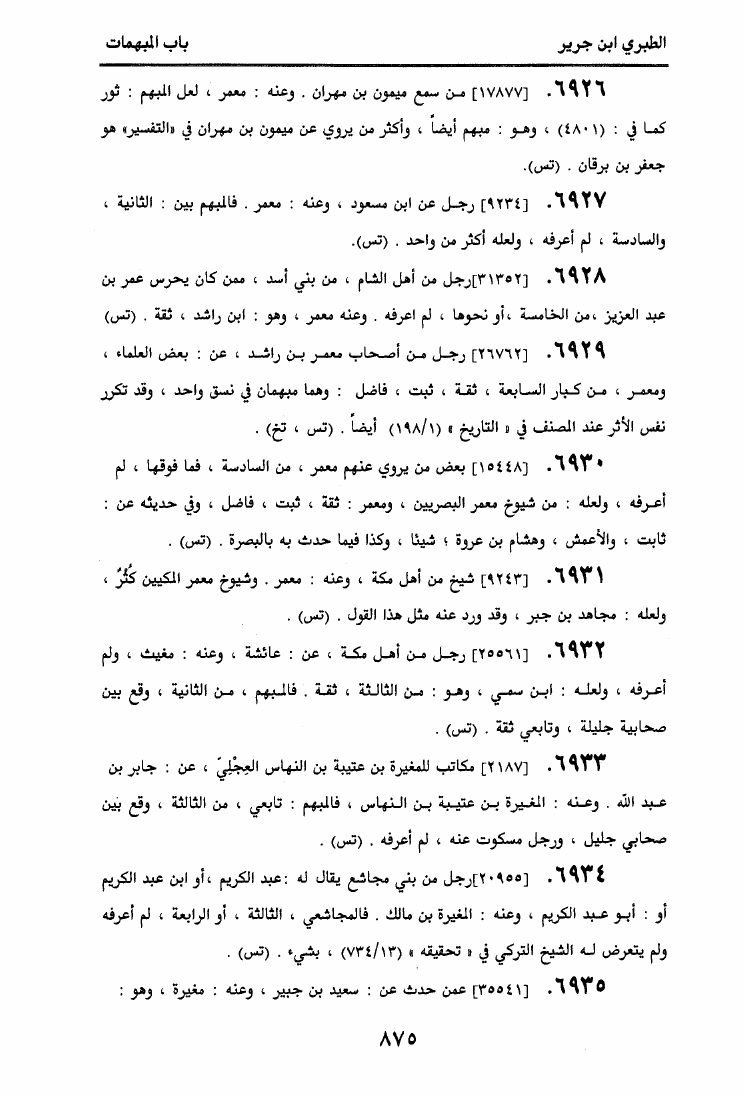 الطبري ابن جرير
باب المبهمات
٦٩٢٦. [١٧٨٧٧] من سمع ميمون بن مهران . وعنه : معمر ، لعل المبهم : ثور
كما في : (٤٨٠١) ، وهو : مبهم أيضاً ، وأكثر من يروي عن ميمون بن مهران في «التفسير» هو
جعفر بن برقان . (تس).
٦٩٢٧. [٩٢٣٤] رجل عن ابن مسعود ، وعنه : معمر . فالمبهم بين : الثانية ،
والسادسة ، لم أعرفه ، ولعله أكثر من واحد . (تس).
٦٩٢٨. [٣١٣٥٢]رجل من أهل الشام ، من بني أسد ، ممن كان يحرس عمر بن
عبد العزيز ،من الخامسة ،أو نحوها ، لم اعرفه . وعنه معمر ، وهو : ابن راشد ، ثقة . (تس)
٦٩٢٩. [٢٦٧٦٢] رجل من أصحاب معمر بن راشد ، عن : بعض العلماء ،
ومعمر ، من كبار السابعة ، ثقة ، ثبت ، فاضل : وهما مبهمان في نسق واحد ، وقد تكرر
نفس الأثر عند المصنف في « التاريخ » (١٩٨/١) أيضاً . (تس ، تخ) .
٦٩٣٠. [١٥٤٤٨] بعض من يروي عنهم معمر ، من السادسة ، فما فوقها ، لم
أعرفه ، ولعله : من شيوخ معمر البصريين ، ومعمر : ثقة ، ثبت ، فاضل ، وفي حديثه عن :
ثابت ، والأعمش ، وهشام بن عروة ؛ شيئا ، وكذا فيما حدث به بالبصرة . (تس) .
٦٩٣١. [٩٢٤٣] شيخ من أهل مكة ، وعنه : معمر . وشيوخ معمر المكيين كُثُرٌ ،
ولعله : مجاهد بن جبر ، وقد ورد عنه مثل هذا القول . (تس) .
٦٩٣٢. [٢٥٥٦١] رجل من أهل مكة ، عن : عائشة ، وعنه : مغيث ، ولم
أعرفه ، ولعله : ابن سمي ، وهو : من الثالثة ، ثقة . فالمبهم ، من الثانية ، وقع بين
صحابية جليلة ، وتابعي ثقة . (تس) .
٦٩٣٣. [٢١٨٧] مكاتب للمغيرة بن عتيبة بن النهاس العِجْلِيّ ، عن : جابر بن
عبد الله . وعنه : المغيرة بن عتيبة بن النهاس ، فالمبهم : تابعي ، من الثالثة ، وقع بين
صحابي جليل ، ورجل مسكوت عنه ، لم أعرفه . (تس) .
٦٩٣٤. [٢٠٩٥٥]رجل من بني مجاشع يقال له :عبد الكريم ،أو ابن عبد الكريم
أو : أبو عبد الكريم ، وعنه : المغيرة بن مالك . فالمجاشعي ، الثالثة ، أو الرابعة ، لم أعرفه
ولم يتعرض له الشيخ التركي في « تحقيقه » (٧٣٤/١٣) ، بشيء . (تس) .
٦٩٣٥. [٣٥٥٤١] عمن حدث عن : سعيد بن جبير ، وعنه : مغيرة ، وهو :
٨٧٥